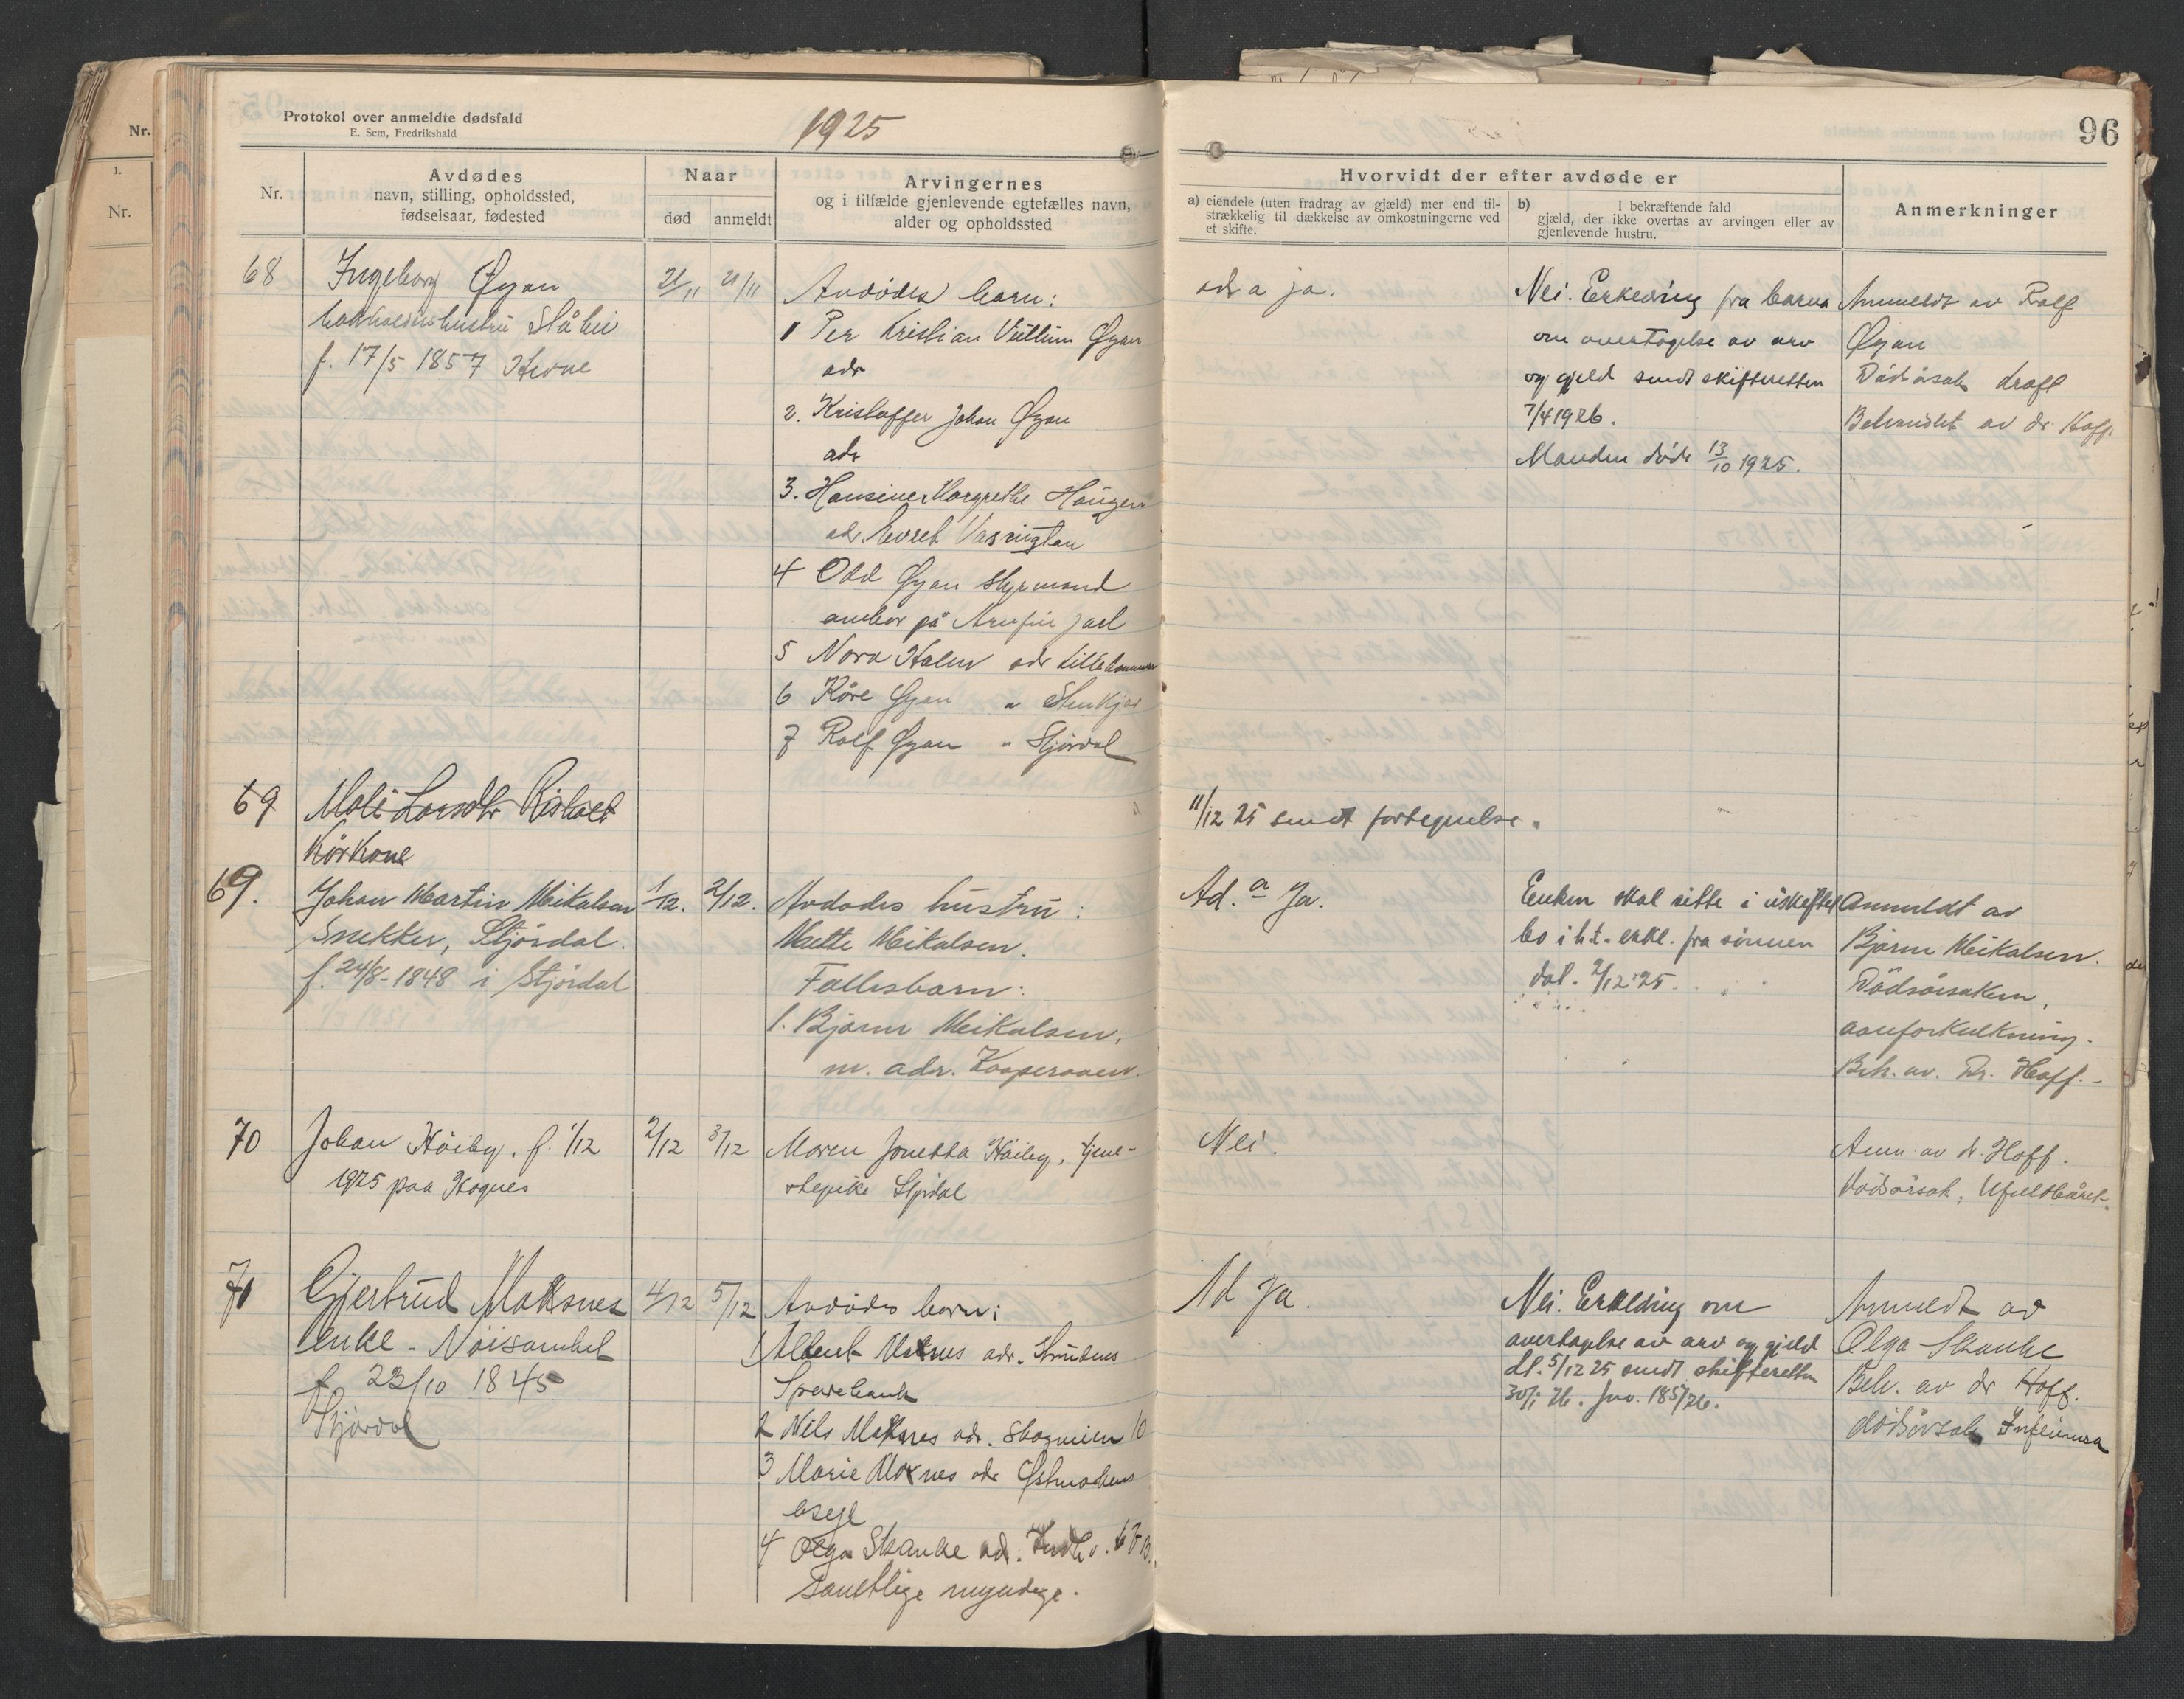 Nr.
1.
Nr.
Protokol over anmeldte dødsfald
E. Sem, Fredrikshald
1925
Nr.
Avdødes
navn, stilling, opholdssted,
fødselsaar, fødested
Naar
død
anmeldt
Arvingernes
og i tilfælde gjenlevende egtefælles navn,
alder og opholdssted
68
Ingeborg Øyan
f. 17/5 1857
21/11
21/11
Avdødes barn:
1 Per Kristian Vullum Øyan
adr
2. Kristoffer Johan Øyan
adr
3. Hansine Margrethe Haugen
adr. Everet Vasington
4 Odd Øyan styrmand
ombor på Arnfin Jarl
5 Nora Halen adr Lillehammer
6 Kåre Øyan " Stenkjær
7 Rolf Øyan " Stjørdal
69
Mali Larsdtr
Kårkone
69.
Johan Martin Meikalsen
Snekker, Stjørdal.
f. 24/8-1848 i Stjørdal
1/12.
2/12.
Avdødes hustru:
Mette Meikalsen.
Fællesbarn:
1. Bjarne Meikalsen,
m. adr.
70
Johan Höiby. f. 1/12
1925 paa Hognes
2/12
3/12
Maren Jonetta Höiby, tjene-
stepike Stjørdal
71
Gjertrud Moksnes
enke -
f. 23/10 1845
Stjørdal
4/12
5/12
Avdødes barn:
1 Albert Moksnes adr. Strindens
Sparebank
2 Nils Moksnes adr. Skogveien 10
3 Marie Moksnes adr Østmarkens
asyl
4 Olga Skanke adr.
samtlige myndige.
96
Hvorvidt der efter avdøde er
a) eiendele (uten fradrag av gjæld) mer end til-
strækkelig til dækkelse av omkostningerne ved
et skifte.
b) I bekræftende fald
gjæld, der ikke overtas av arvingen eller av
gjenlevende hustru.
Anmerkninger
ad a ja.
Nei. Erklæring fra barna
om overtagelse av arv
og gjeld sendt skifteretten
7/4 1926.
Manden døde 13/10 1925.
Anmeldt av Rolf
Øyan
Dødsårsak kræft
Behandlet av dr. Hoff.
11/12 25 sendt fortegnelse.
Ad. a Ja.
Enken skal sitte i uskiftet
bo i h.t. erkl. fra sönnen
dat. 2/12 '25.
Anmeldt av
Bjarne Meikalsen.
Dödsårsaken,
aareforkalkning.
Beh. av. Dr. Hoff.-
Nei.
Anm. av dr. Hoff.
Dödsårsak, Ufuldbåret.
Ad Ja.
Nei. Erklæring om
overtagelse av arv og gjeld
dt. 5/12 25 sendt skifteretten
30/1 26. Jno. 185/26.
Anmeldt av
Olga Skanke
Beh. av dr Hoff.
dödsårsak Influensa